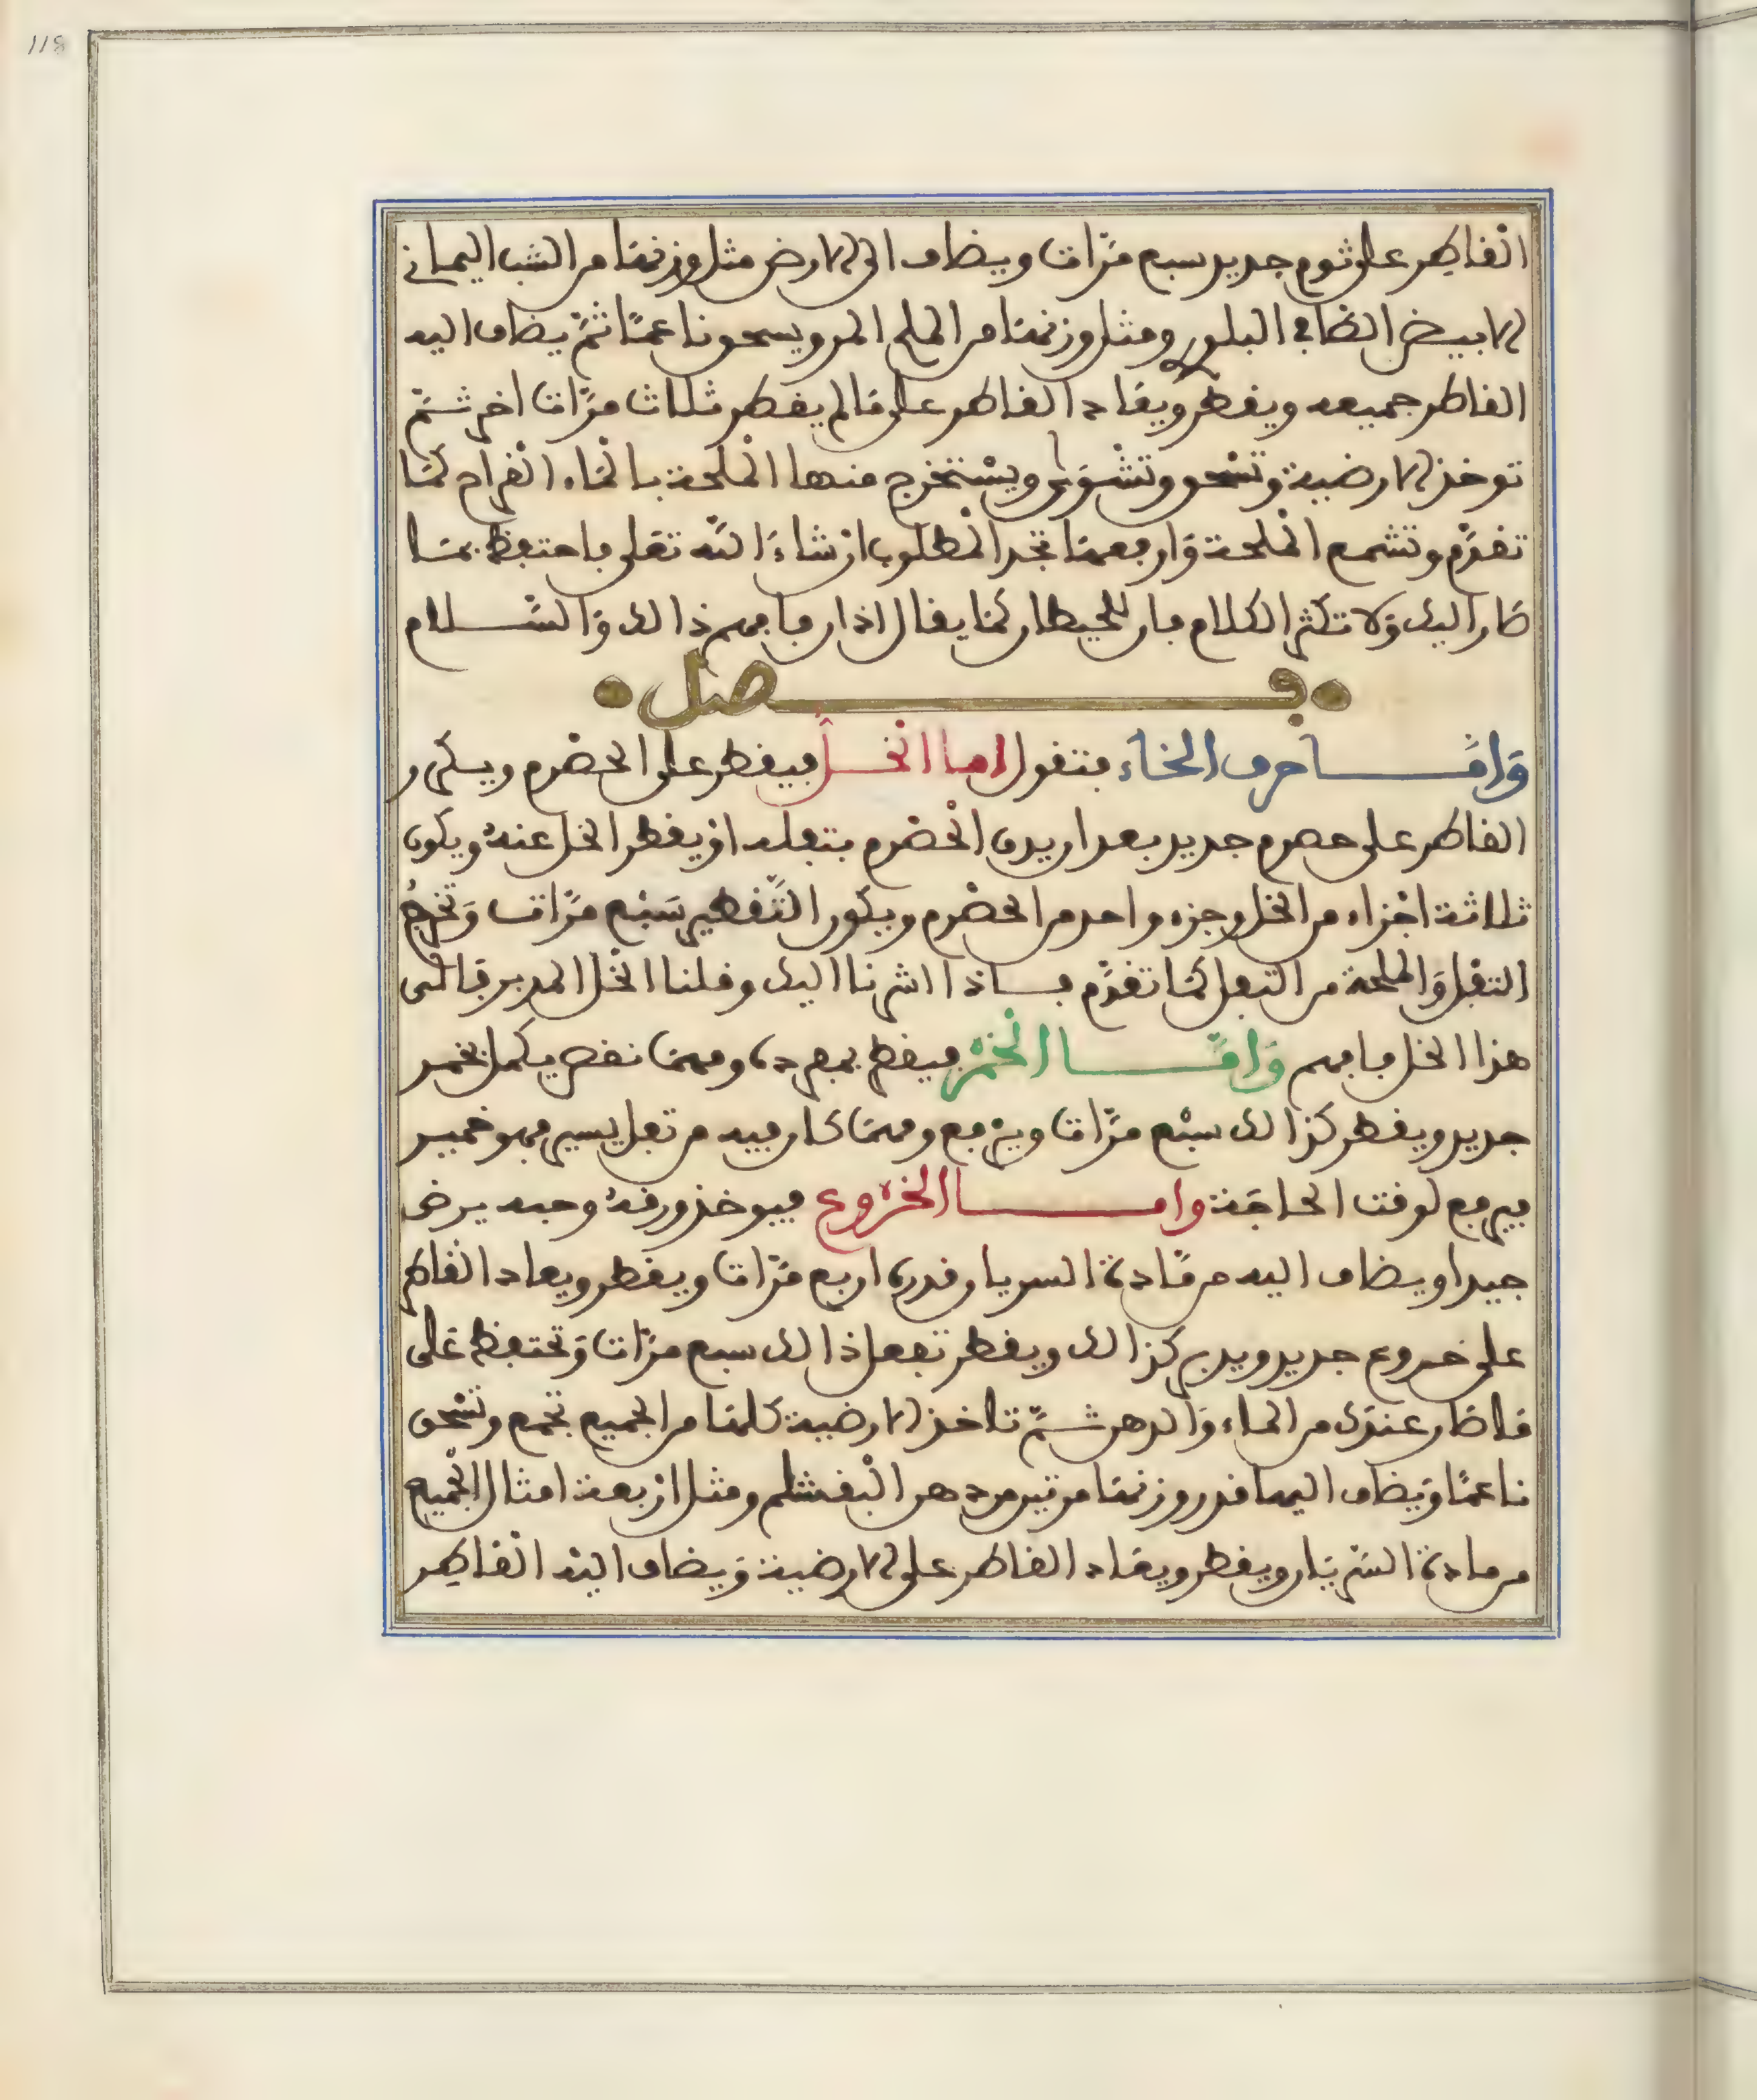 118
القاطر على ثوم جديد سبع مرّات ويضاف الى الارض مثل وزنها من الشب اليماني
الابيض الصافي البلور ومثل وزنها من الملح المر ويسحق ناعمًا ثمّ يضاف اليه
القاطر جميعه ويقطر ويعاد القاطر على ما لم يقطر ثلاث مرّات اخر ثمّ
توخذ الارضية وتسحق وتشوى ويستخرج منها الملحة بالماء القراح كما
تقدّم وتشمع الملحة وارفعها تجد المطلوب ان شاء الله تعلى فاحتفظ بما
صار اليك ولا تكثر الكلام فان للحيطان كما يقال اذان فافهم ذالك والسّلام
فصل
وامّا حرف الخاء فنقول اما الخل فيقطر على الحصرم ويكرر
القاطر على حصرم جديد بعد ان يدق الحصرم بتفله او يقطر الخل عنه ويكون
ثلاثة اجزاء من الخل وجزء واحد من الحصرم ويكون التّقطير سبع مرّات وتخرج
التفل والملحة من التفل كما تقدّم فاذا اشرنا اليك وقلنا الخل المدبر فالى
هذا الخل فافهم وامّا الخمر فيقطر بمفرده ومهما نقص يكمل بخمر
جديد ويقطر كذالك سبع مرّات ويرفع ومهما كان فيه من تفل يسير فهو خمير
فيرفع لوقت الحاجة واما الخروع فيوخذ ورقه وحبه يرض
جيدا ويضاف اليه من مادة السريان قدره اربع مرّات ويقطر ويعاد القاطر
على خروع جديد ويدبر كذالك ويقطر تفعل ذالك سبع مرّات وتحتفظ على
ما صار عندك من الماء والدهن ثمّ تاخذ الارضية كلها من الجميع تجمع وتسحق
ناعمًا ويضاف اليها قدر وزنها مرتين من دهن البقشلم ومثل اربعة امثال الجميع
من مادة السّريان ويقطر ويعاد القاطر على الارضية ويضاف اليه القاطر